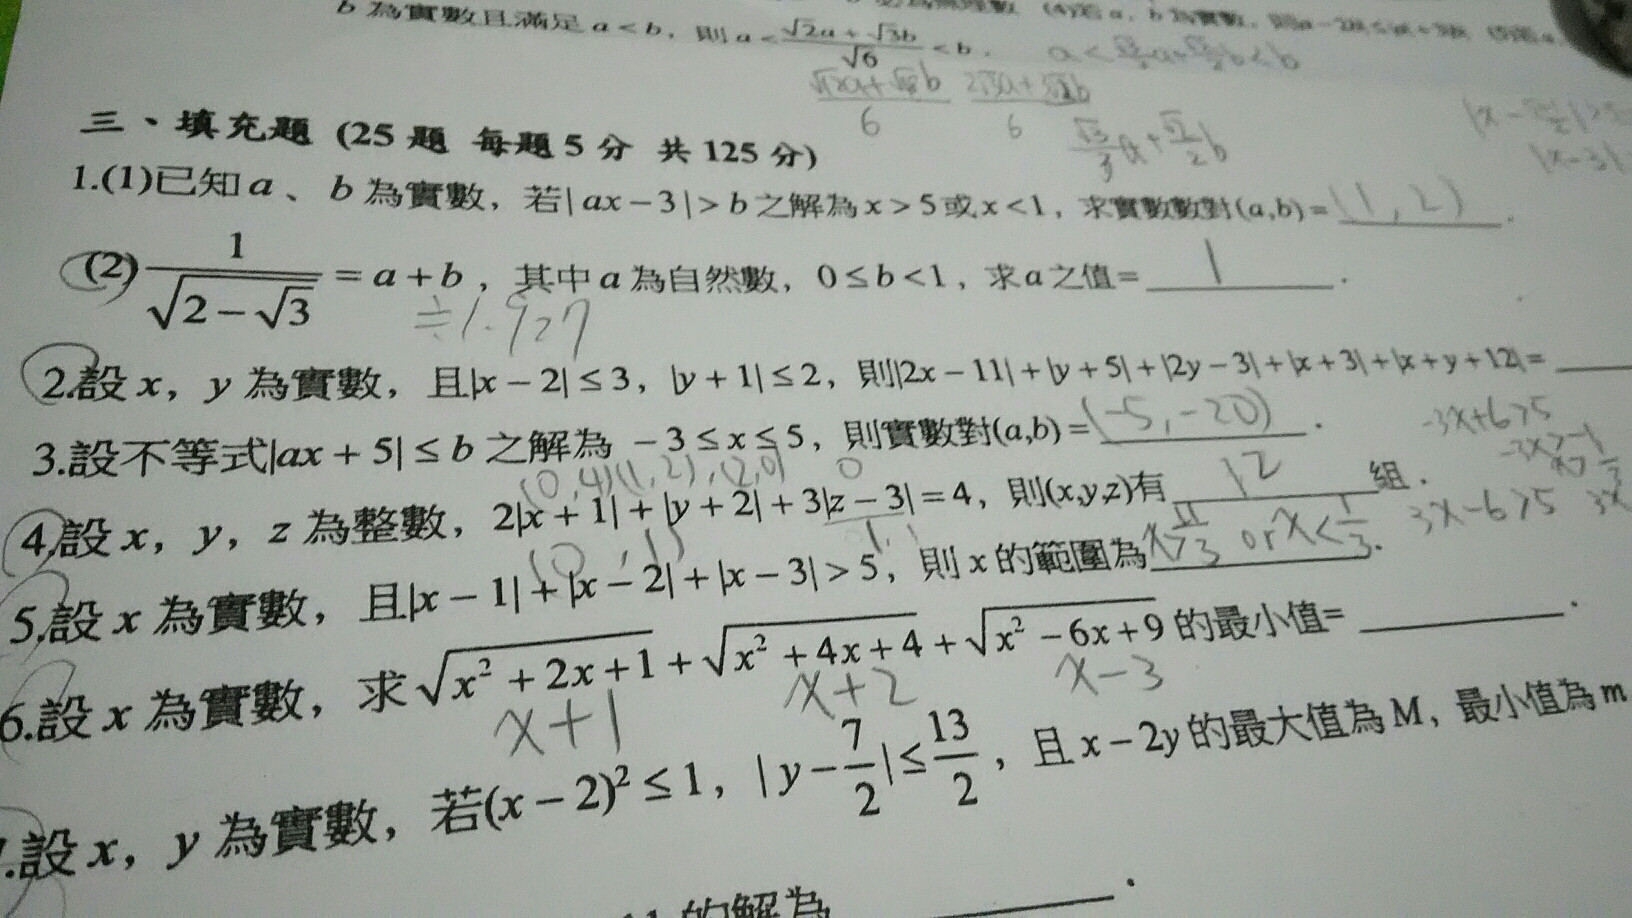 b 為實數且滿足 a < b，則 a < (√2a + √3b)/√6 < b．
三、填充題 (25 題 每題 5 分 共 125 分)
1.(1)已知 a、b 為實數，若| ax − 3 | > b 之解為 x > 5 或 x < 1，求實數數對(a,b) = (1, 2)．
(2) 1/√(2 − √3) = a + b，其中 a 為自然數，0 ≤ b < 1，求 a 之值= 1．
2.設 x，y 為實數，且|x − 2| ≤ 3，|y + 1| ≤ 2，則|2x − 11| + |y + 5| + |2y − 3| + |x + 3| + |x + y + 12| =
3.設不等式|ax + 5| ≤ b 之解為 −3 ≤ x ≤ 5，則實數對(a,b) = (-5, -20)．
-3x+6>5
(0,4)(1,2),(2,0) 0
4.設 x，y，z 為整數，2|x + 1| + |y + 2| + 3|z − 3| = 4，則(x,y,z)有 12 組．
3x-6>5
5.設 x 為實數，且|x − 1| + |x − 2| + |x − 3| > 5，則 x 的範圍為 x>11/3 or x<1/3．
6.設 x 為實數，求√(x² + 2x + 1) + √(x² + 4x + 4) + √(x² − 6x + 9) 的最小值=
x+1 x+2 x-3
.設 x，y 為實數，若(x − 2)² ≤ 1，| y − 7/2 | ≤ 13/2，且 x − 2y 的最大值為 M，最小值為 m
的解為